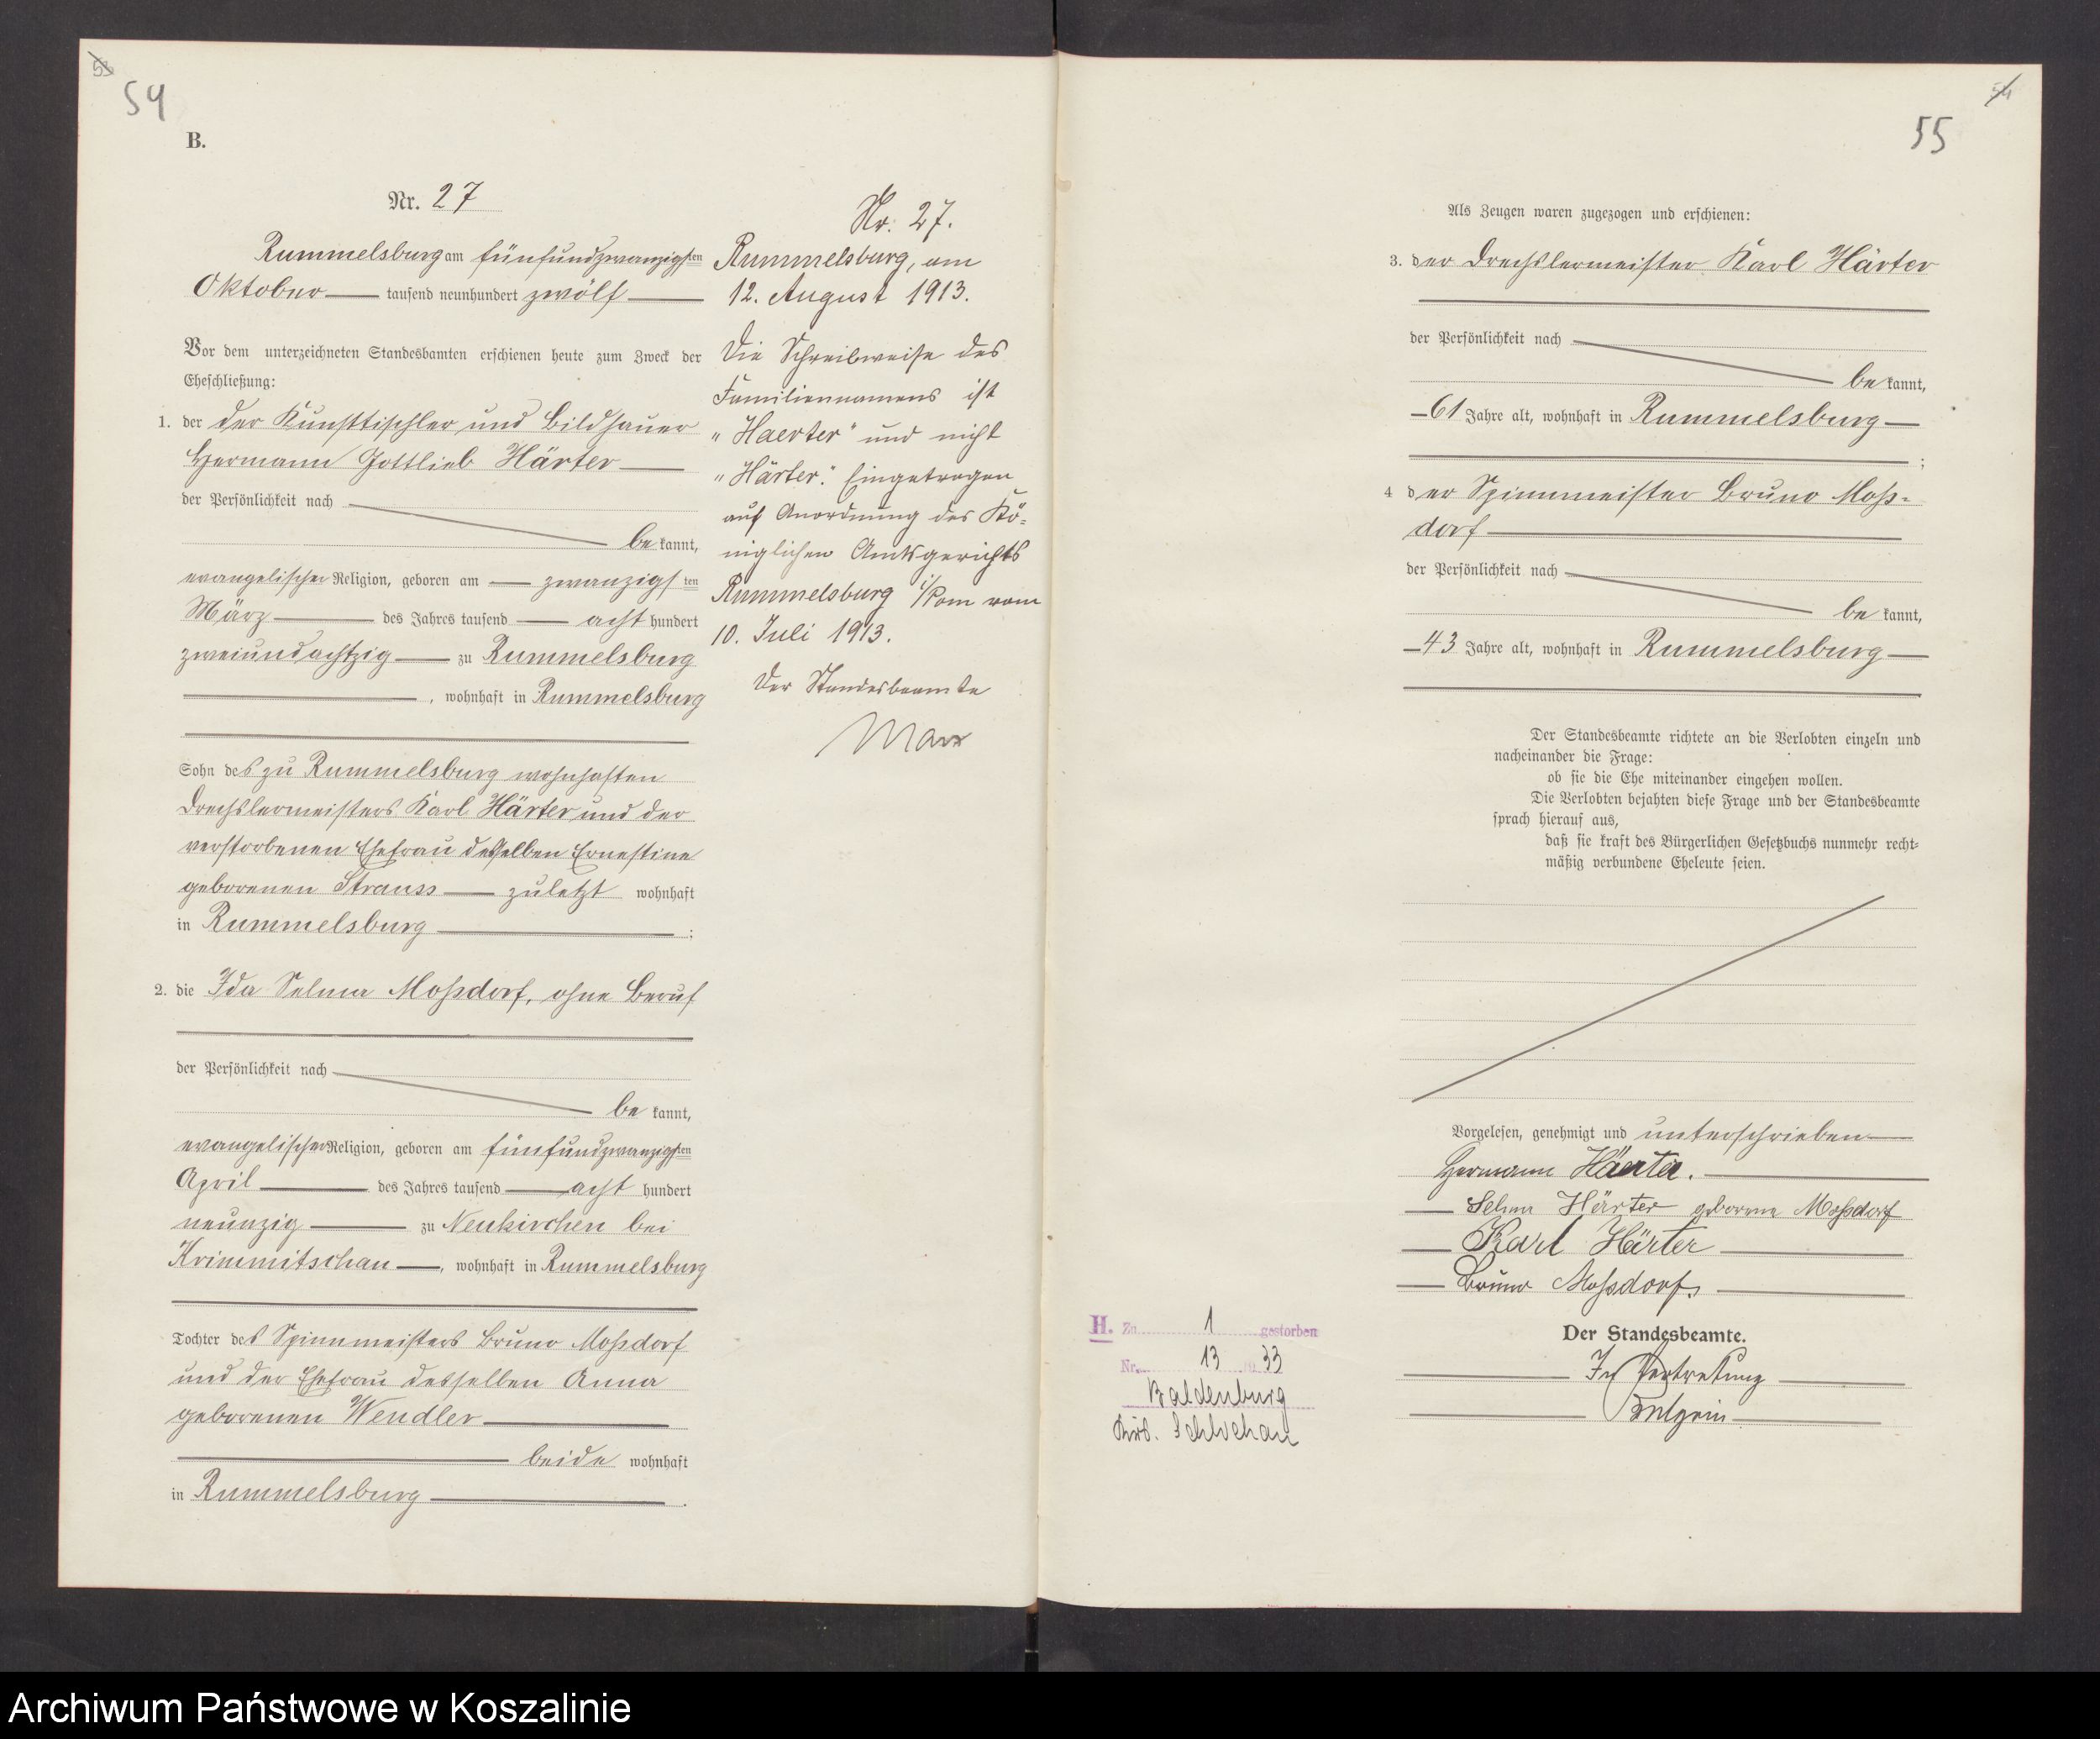 53
54
B.
Nr. 27
Rummelsburg am fünfundzwanzigsten
Oktober tausend neunhundert zwölf
Vor dem unterzeichneten Standesbamten erschienen heute zum Zweck der
Eheschließung:
1. der der Kunsttischler und Bildhauer
Hermann Gottlieb Härter
der Persönlichkeit nach
be kannt,
evangelischer Religion, geboren am zwanzigsten
März des Jahres tausend acht hundert
zweiundachtzig zu Rummelsburg
, wohnhaft in Rummelsburg
Sohn des zu Rummelsburg wohnhaften
Drechslermeisters Karl Härter und der
verstorbenen Ehefrau desselben Ernestine
geborenen Strauss zuletzt wohnhaft
in Rummelsburg ;
2. die Ida Selma Moßdorf, ohne Beruf
der Persönlichkeit nach
be kannt,
evangelischer Religion, geboren am fünfundzwanzigsten
April des Jahres tausend acht hundert
neunzig zu Neukirchen bei
Krimmitschau, wohnhaft in Rummelsburg
Tochter des Spinnmeisters Bruno Moßdorf
und der Ehefrau desselben Anna
geborenen Wendler
beide wohnhaft
in Rummelsburg .
Nr. 27.
Rummelsburg, am
12. August 1913.
Die Schreibweise des
Familiennamens ist
„Haerter" und nicht
„Härter". Eingetragen
auf Anordnung des Kö-
niglichen Amtsgerichts
Rummelsburg i/Pom vom
10. Juli 1913.
Der Standesbeamte
Marx
55
Als Zeugen waren zugezogen und erschienen:
3. der Drechslermeister Karl Härter
der Persönlichkeit nach
be kannt,
61 Jahre alt, wohnhaft in Rummelsburg
;
4 der Spinnmeister Bruno Moß-
dorf
der Persönlichkeit nach
be kannt,
43 Jahre alt, wohnhaft in Rummelsburg
Der Standesbeamte richtete an die Verlobten einzeln und
nacheinander die Frage:
ob sie die Ehe miteinander eingehen wollen.
Die Verlobten bejahten diese Frage und der Standesbeamte
sprach hierauf aus,
daß sie kraft des Bürgerlichen Gesetzbuchs nunmehr recht-
mäßig verbundene Eheleute seien.
Vorgelesen, genehmigt und unterschrieben
Hermann Haerter.
Selma Härter geborene Moßdorf
Karl Härter
Bruno Moßdorf.
Der Standesbeamte.
In Vertretung
H. Zu 1 gestorben
Nr. 13 19 33
Baldenburg
Schlochau
Archiwum Państwowe w Koszalinie